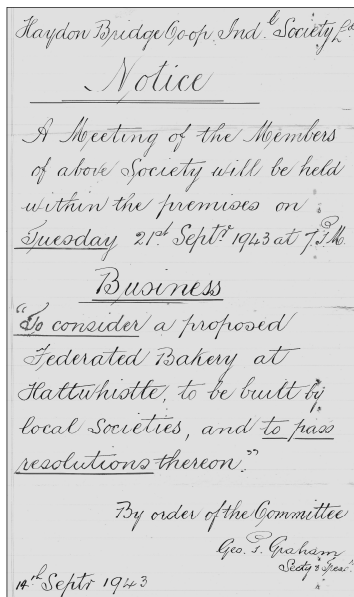 Haydon Bridge Co-op. Ind.l Society Ltd
Notice
A Meeting of the Members
of above Society will be held
within the premises on
Tuesday 21st Septr 1943 at 7. P.M.
Business
"To consider a proposed
Federated Bakery at
Haltwhistle, to be built by
local Societies, and to pass
resolutions thereon."
By order of the Committee
Geo. T. Graham
Secty &
14th Septr 1943